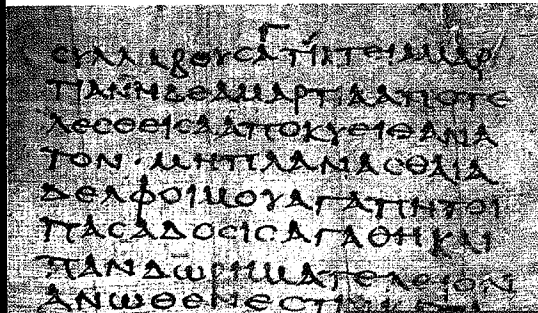 Γ
ϹΥΛΛΑΒΟΥϹΑΤΙΚΤΕΙΑΜΑΡ
ΤΙΑΝΗΔΕΑΜΑΡΤΙΑΑΠΟΤΕ
ΛΕϹΘΕΙϹΑΑΠΟΚΥΕΙΘΑΝΑ
ΤΟΝ·ΜΗΠΛΑΝΑϹΘΑΙΑ
ΔΕΛΦΟΙΜΟΥΑΓΑΠΗΤΟΙ
ΠΑϹΑΔΟϹΙϹΑΓΑΘΗΚΑΙ
ΠΑΝΔΩΡΗΜΑΤΕΛΕΙΟΝ
ΑΝΩΘΕΝΕϹΤΙΝ